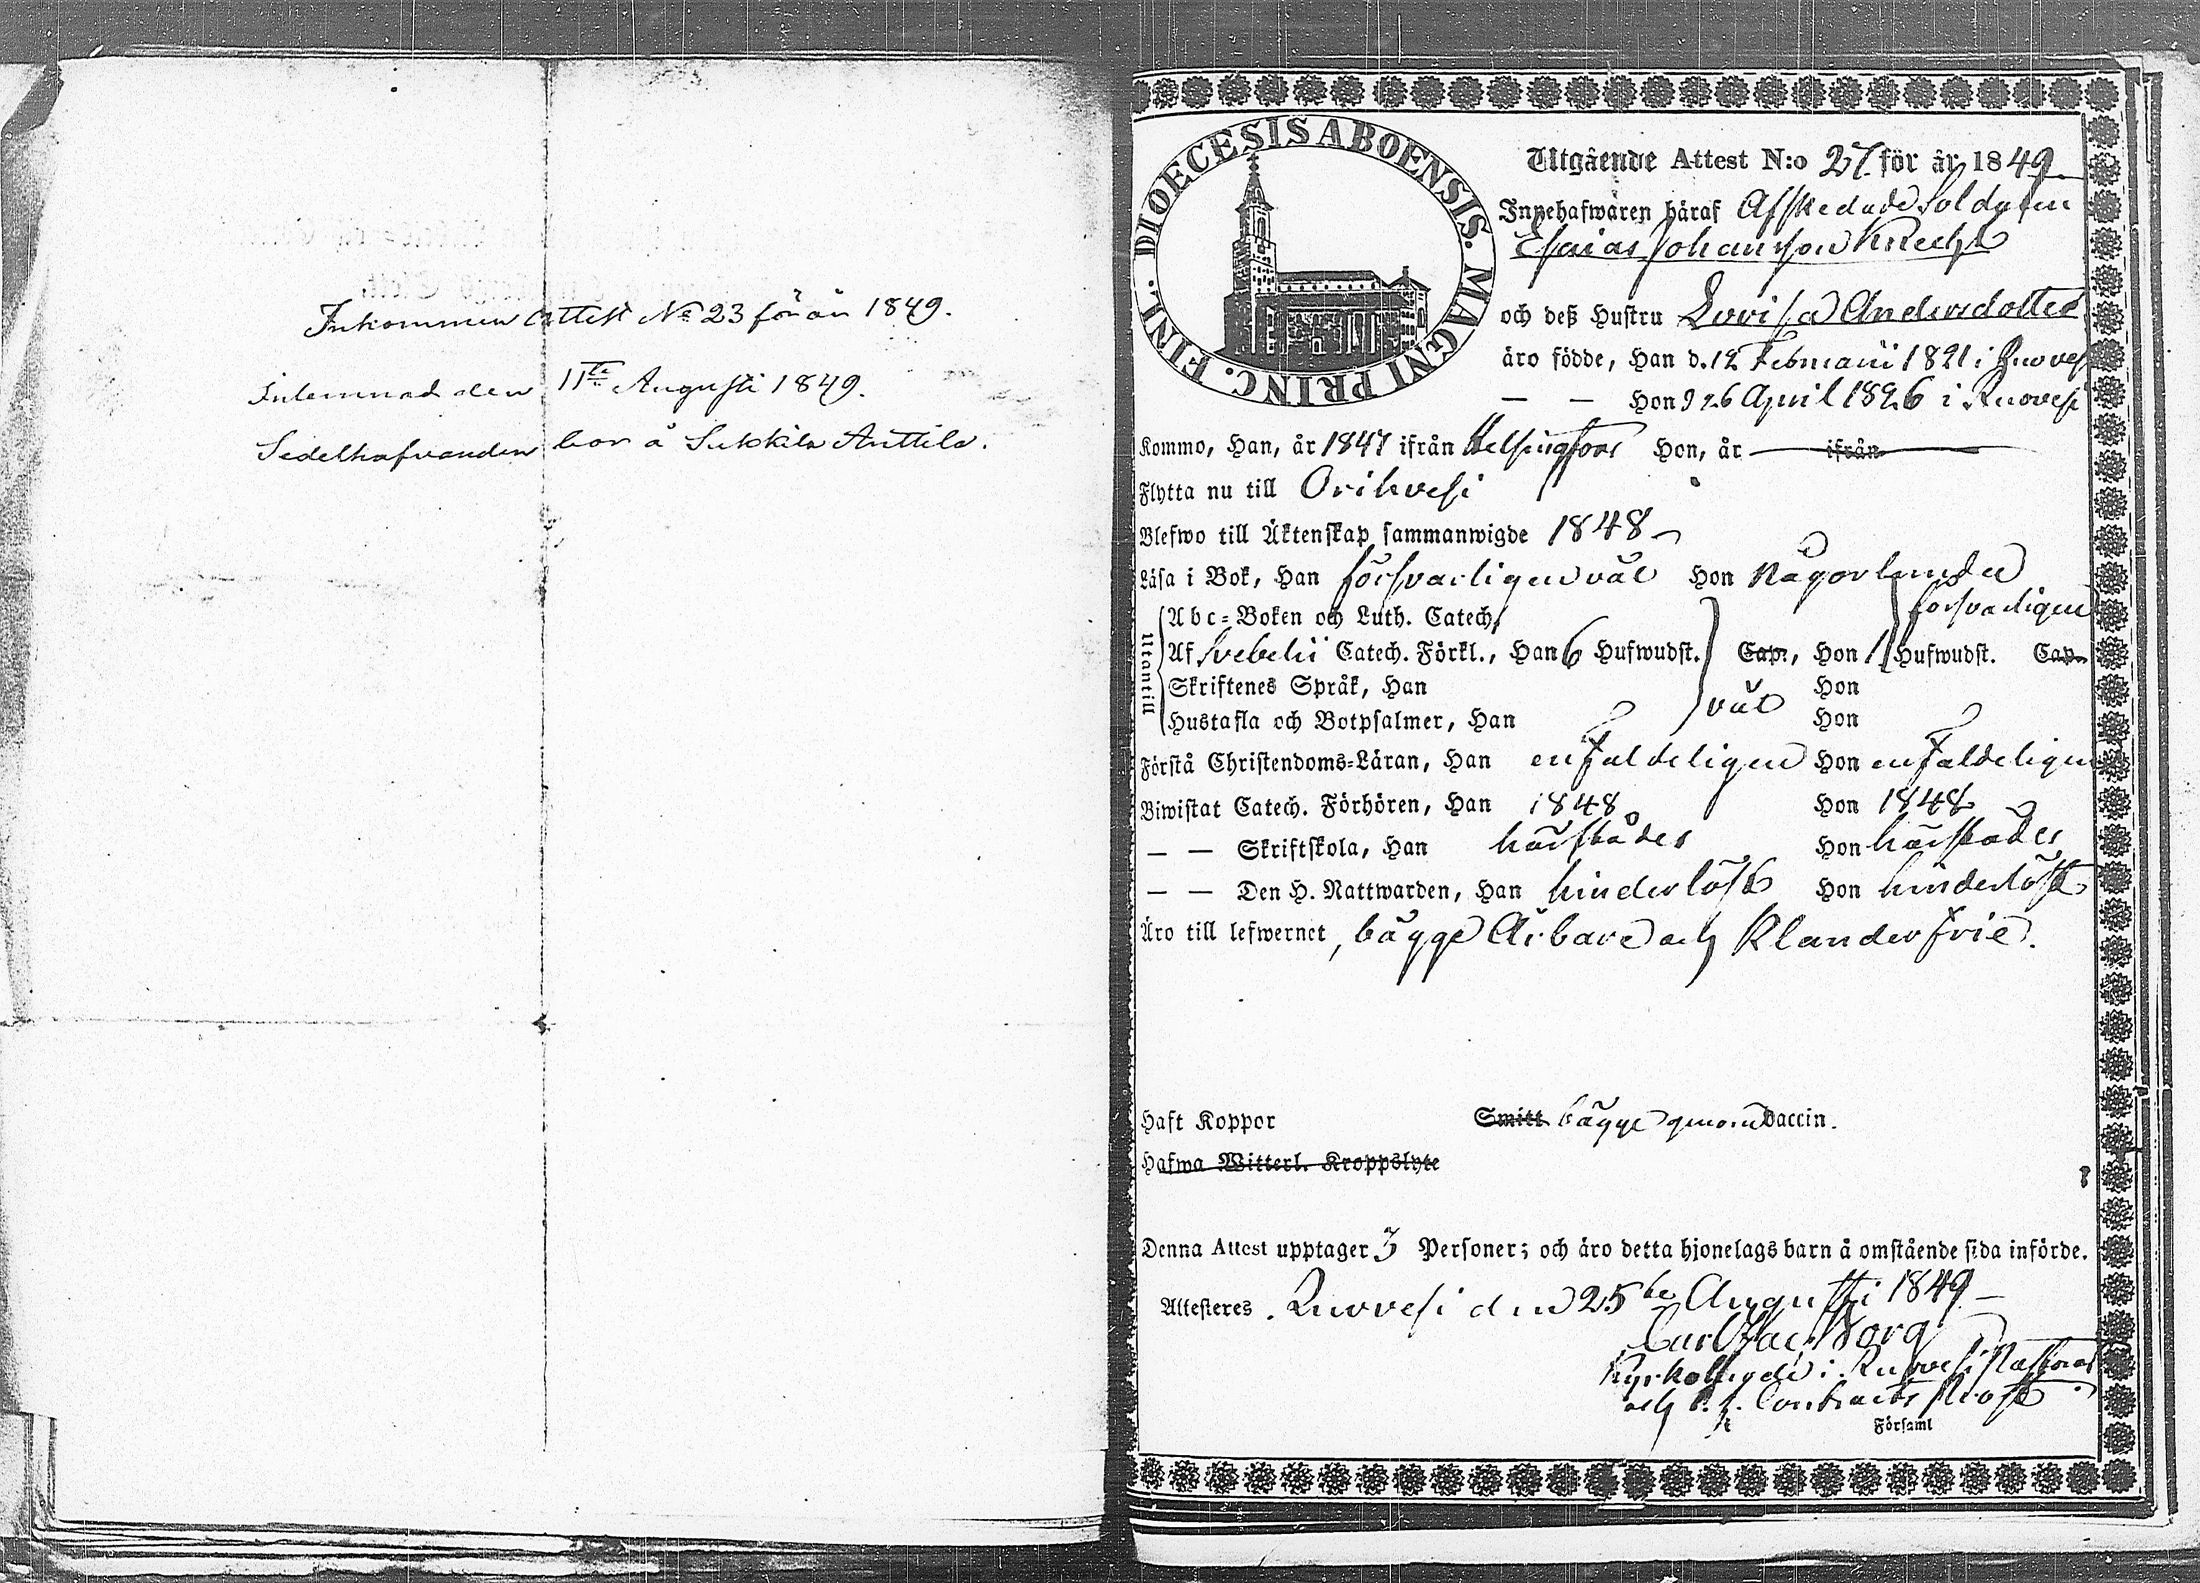 Inkommen Attest No 23 för år 1849.
Inlemnad den 11te Augusti 1849.
Sedelhafvanden bor å Sukkila Anttila.
DIOECESIS ABOENSIS. MAGNI PRINC. FINL.
Utgående Attest N:o 27. för år 1849.
Innehafwaren häraf Afskedade Soldaten
Esaias Johansson Knecht
och deß Hustru Lovisa Andersdotter
äro födde, Han d. 12 Februarii 1821 i Ruovesi
— — Hon d 26 April 1826 i Ruovesi
Kommo, Han, år 1847 ifrån Helsingfors Hon, år — ifrån
Flytta nu till Orihvesi
Blefwo till Äktenskap sammanwigde 1848
Läsa i Bok, Han försvarligen väl Hon någorlunda
försvarligen
Utantill
Abc-Boken och Luth. Catech.
Af Svebelii Catech. Förkl., Han 6 Hufwudst. Cap., Hon 1 Hufwudst. Cap.
Skriftenes Språk, Han Hon
väl
Hustafla och Botpsalmer, Han Hon
Förstå Christendoms-Läran, Han enfaldeligen Hon enfaldeligen
Biwistat Catech. Förhören, Han 1848 Hon 1848
— — Skriftskola, Han härstädes Hon härstädes
— — Den H. Nattwarden, Han hinderlöst Hon hinderlöst
Äro till lefwernet, bägge Ärbare och Klanderfrie.
Haft Koppor Smitt bägge genom Vaccin.
Hafwa Witterl. Kroppslyte
Denna Attest upptager 3 Personer; och äro detta hjonelags barn å omstående sida införde.
Attesteres. Ruovesi den 25te Augusti 1849
Carl Borg
Kyrkoherde i Ruovesi Pastorat
och Contracts Prost
i Församl